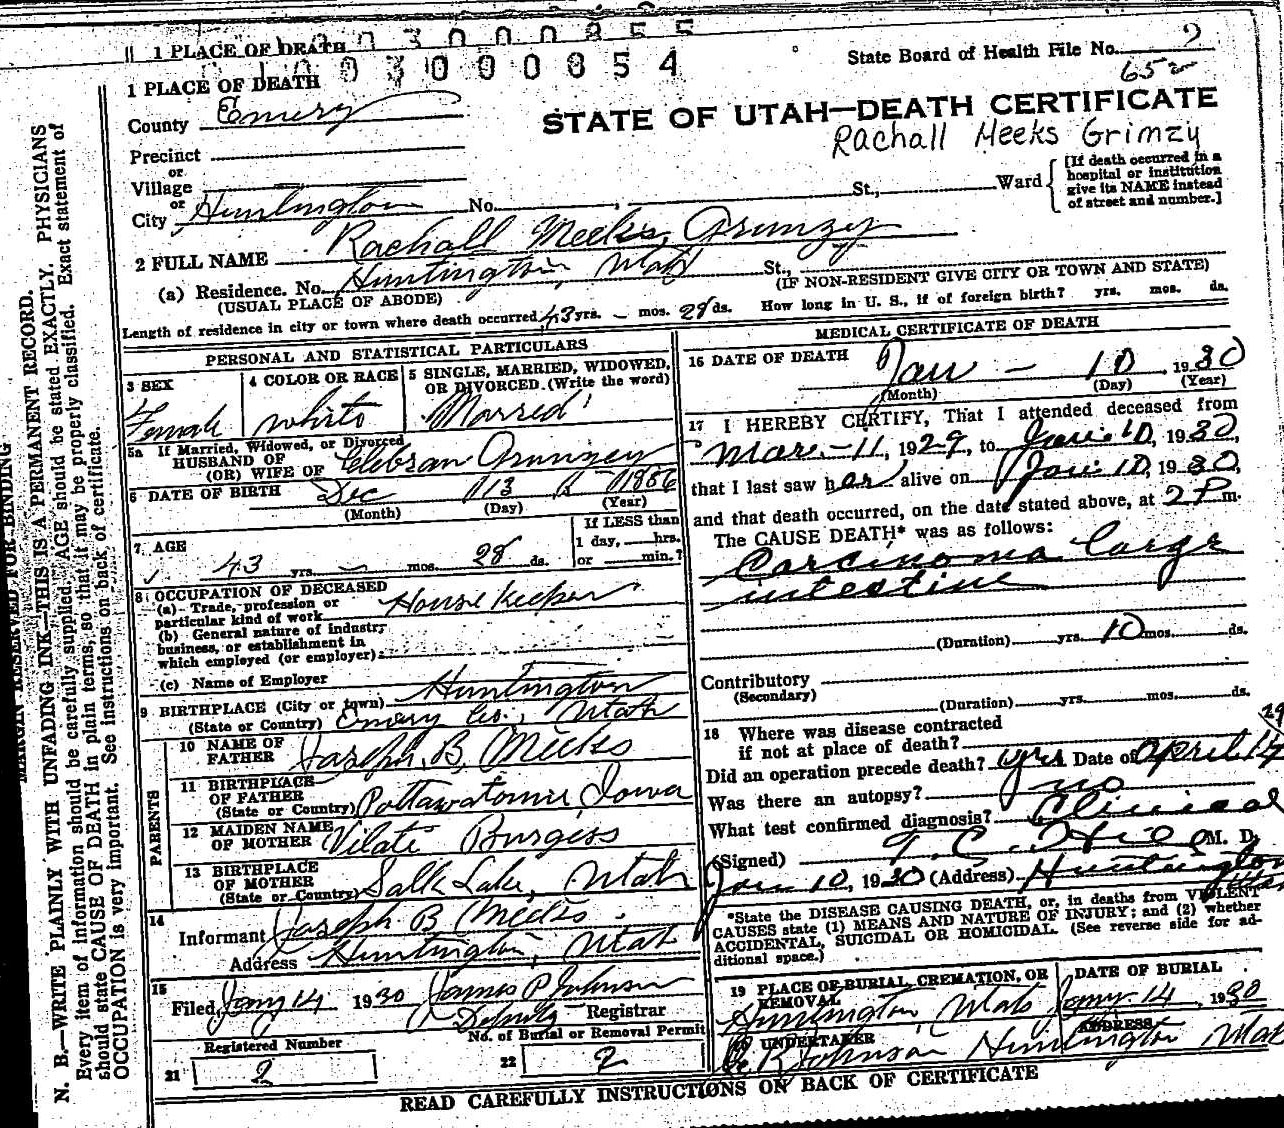 3 0 0 0 8 5 5
1 PLACE OF DEATH
0 1 0 0 3 0 0 0 0 8 5 4
State Board of Health File No. 2
652
1 PLACE OF DEATH
County Emery
STATE OF UTAH—DEATH CERTIFICATE
Rachall Meeks Grimzy
Precinct
or
Village
or
City Huntington No. St., Ward
[If death occurred in a
hospital or institution
give its NAME instead
of street and number.]
2 FULL NAME Rachall Meeks Grimzy
(a) Residence. No. Huntington, Utah St.,
(USUAL PLACE OF ABODE) (IF NON-RESIDENT GIVE CITY OR TOWN AND STATE)
Length of residence in city or town where death occurred 43 yrs. — mos. 28 ds. How long in U. S., if of foreign birth? yrs. mos. ds.
PERSONAL AND STATISTICAL PARTICULARS
3 SEX
Female
4 COLOR OR RACE
White
5 SINGLE, MARRIED, WIDOWED,
OR DIVORCED. (Write the word)
Married
5a If Married, Widowed, or Divorced
HUSBAND OF
(OR) WIFE OF
6 DATE OF BIRTH Dec 13 1886
(Month) (Day) (Year)
7. AGE
43 yrs. — mos. 28 ds.
If LESS than
1 day, hrs.
or min.?
8 OCCUPATION OF DECEASED
(a) Trade, profession or
particular kind of work House Keeper
(b) General nature of industry
business, or establishment in
which employed (or employer)
(c) Name of Employer
9 BIRTHPLACE (City or town) Huntington
(State or Country) Emery Co., Utah
PARENTS
10 NAME OF
FATHER Joseph. B. Meeks
11 BIRTHPLACE
OF FATHER
(State or Country) Pottawatomie Iowa
12 MAIDEN NAME
OF MOTHER Vilate Burgess
13 BIRTHPLACE
OF MOTHER
(State or Country) Salt Lake, Utah
14
Informant Joseph B Meeks
Address Huntington, Utah
15
Filed Jany 14 1930 James P Johnson
Deputy Registrar
No. of Burial or Removal Permit
Registered Number
21 2
22 2
MEDICAL CERTIFICATE OF DEATH
16 DATE OF DEATH
Jan — 10, 1930
(Month) (Day) (Year)
17 I HEREBY CERTIFY, That I attended deceased from
Mar. - 11, 1929, to Jan. 10, 1930,
that I last saw her alive on Jan. 10, 1930,
and that death occurred, on the date stated above, at 2 P m.
The CAUSE DEATH* was as follows:
Carcinoma large
intestine
(Duration) yrs. 10 mos. ds.
Contributory
(Secondary)
(Duration) yrs. mos. ds.
18 Where was disease contracted
if not at place of death?
29
Did an operation precede death? yes Date of April 17
Was there an autopsy? no
What test confirmed diagnosis? Clinical
(Signed) T. C. Hill M. D.
Jan 10, 1930 (Address) Huntington
Utah
*State the DISEASE CAUSING DEATH, or, in deaths from VIOLENT
CAUSES state (1) MEANS AND NATURE OF INJURY; and (2) whether
ACCIDENTAL, SUICIDAL OR HOMICIDAL. (See reverse side for ad-
ditional space.)
19 PLACE OF BURIAL, CREMATION, OR
REMOVAL
Huntington, Utah
DATE OF BURIAL
Jany. 14, 1930
20 UNDERTAKER ADDRESS
Johnson Huntington Utah
READ CAREFULLY INSTRUCTIONS ON BACK OF CERTIFICATE
MARGIN RESERVED FOR BINDING
N. B.—WRITE PLAINLY WITH UNFADING INK—THIS IS A PERMANENT RECORD.
Every item of information should be carefully supplied. AGE should be stated EXACTLY. PHYSICIANS
should state CAUSE OF DEATH in plain terms, so that it may be properly classified. Exact statement of
OCCUPATION is very important. See instructions on back of certificate.